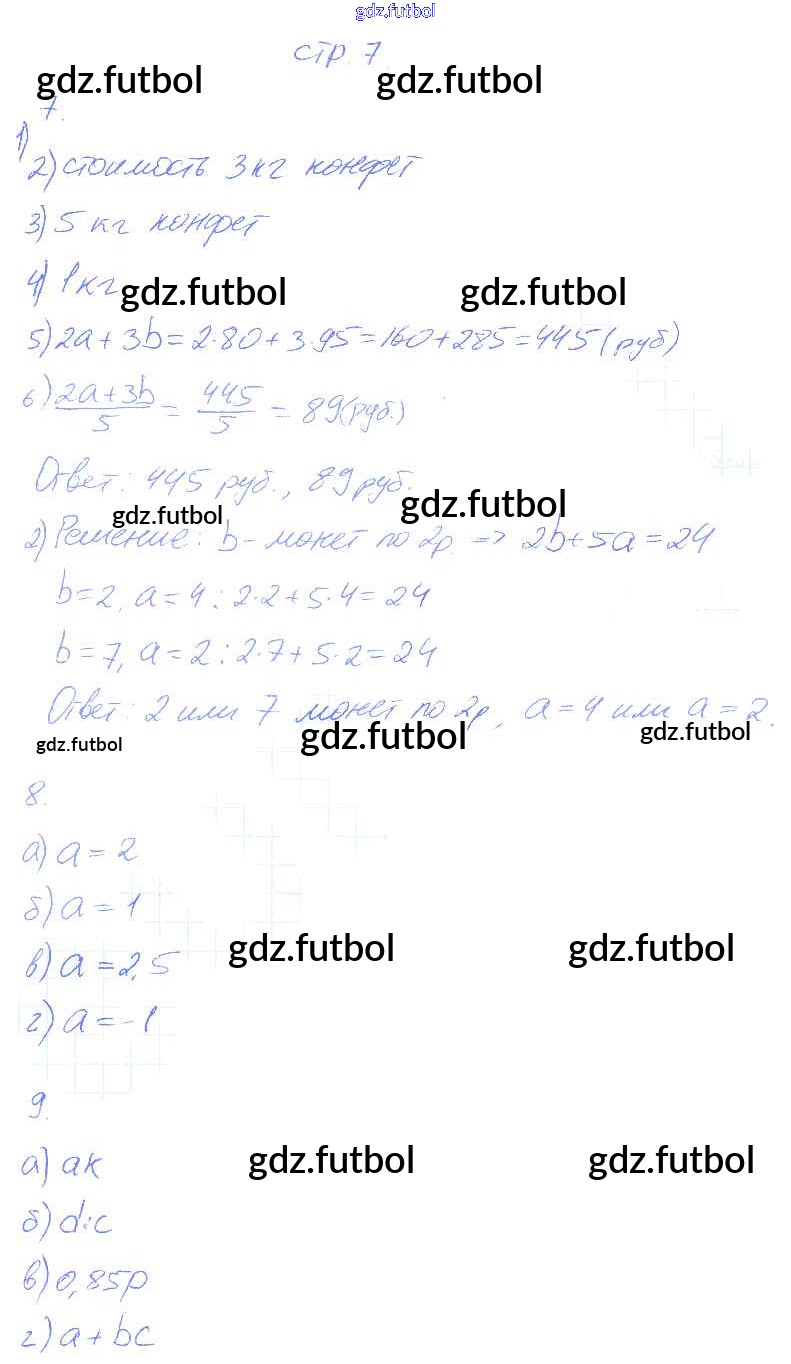 gdz.futbol
стр. 7
gdz.futbol gdz.futbol
7.
1)
2) стоимость 3 кг конфет
3) 5 кг конфет
4) 1 кг
gdz.futbol gdz.futbol
5) 2a + 3b = 2·80 + 3·95 = 160 + 285 = 445 (руб)
6) (2a+3b)/5 = 445/5 = 89 (руб.)
Ответ: 445 руб., 89 руб.
gdz.futbol gdz.futbol
2) Решение: b - может по 2р. => 2b+5a = 24
b = 2, a = 4 : 2·2 + 5·4 = 24
b = 7, a = 2 : 2·7 + 5·2 = 24
Ответ: 2 или 7 может по 2р, a = 4 или a = 2.
gdz.futbol gdz.futbol gdz.futbol
8.
а) a = 2
б) a = 1
в) a = 2,5
gdz.futbol gdz.futbol
г) a = -1
9.
а) ak
gdz.futbol gdz.futbol
б) d:c
в) 0,85p
г) a + bc